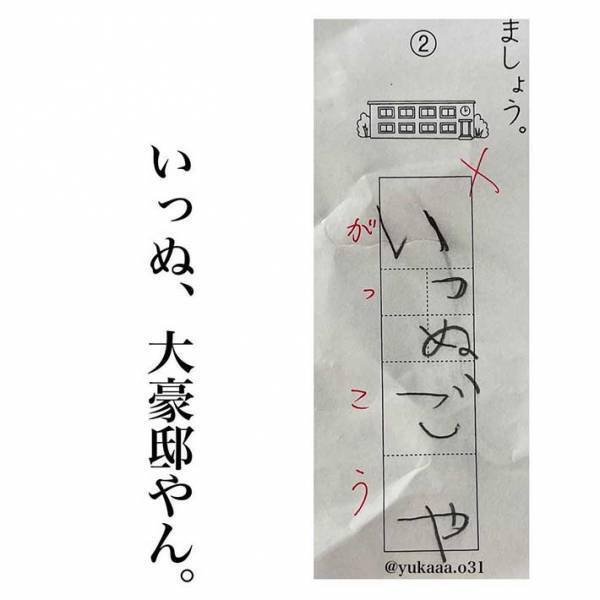 いっぬ、大豪邸やん。
ましょう。
②
×
いっぬごや
がっこう
@yukaaa.o31